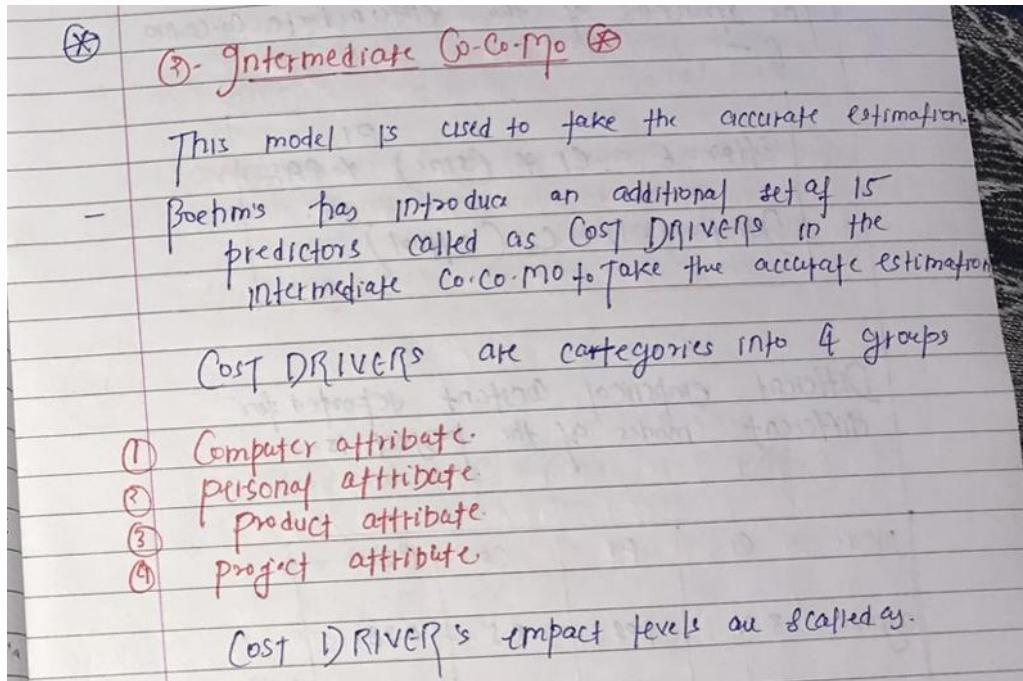 (2)- Intermediate Co-Co-Mo
This model is used to take the accurate estimation.
- Boehm's has introduce an additional set of 15
predictors called as COST DRIVERS in the
intermediate Co.Co.Mo to Take the accurate estimation
COST DRIVERS are cartegories into 4 groups
① Computer attribute.
② personal attribute.
③ product attribute.
④ project attribute.
COST DRIVER's empact levels are scalled as.